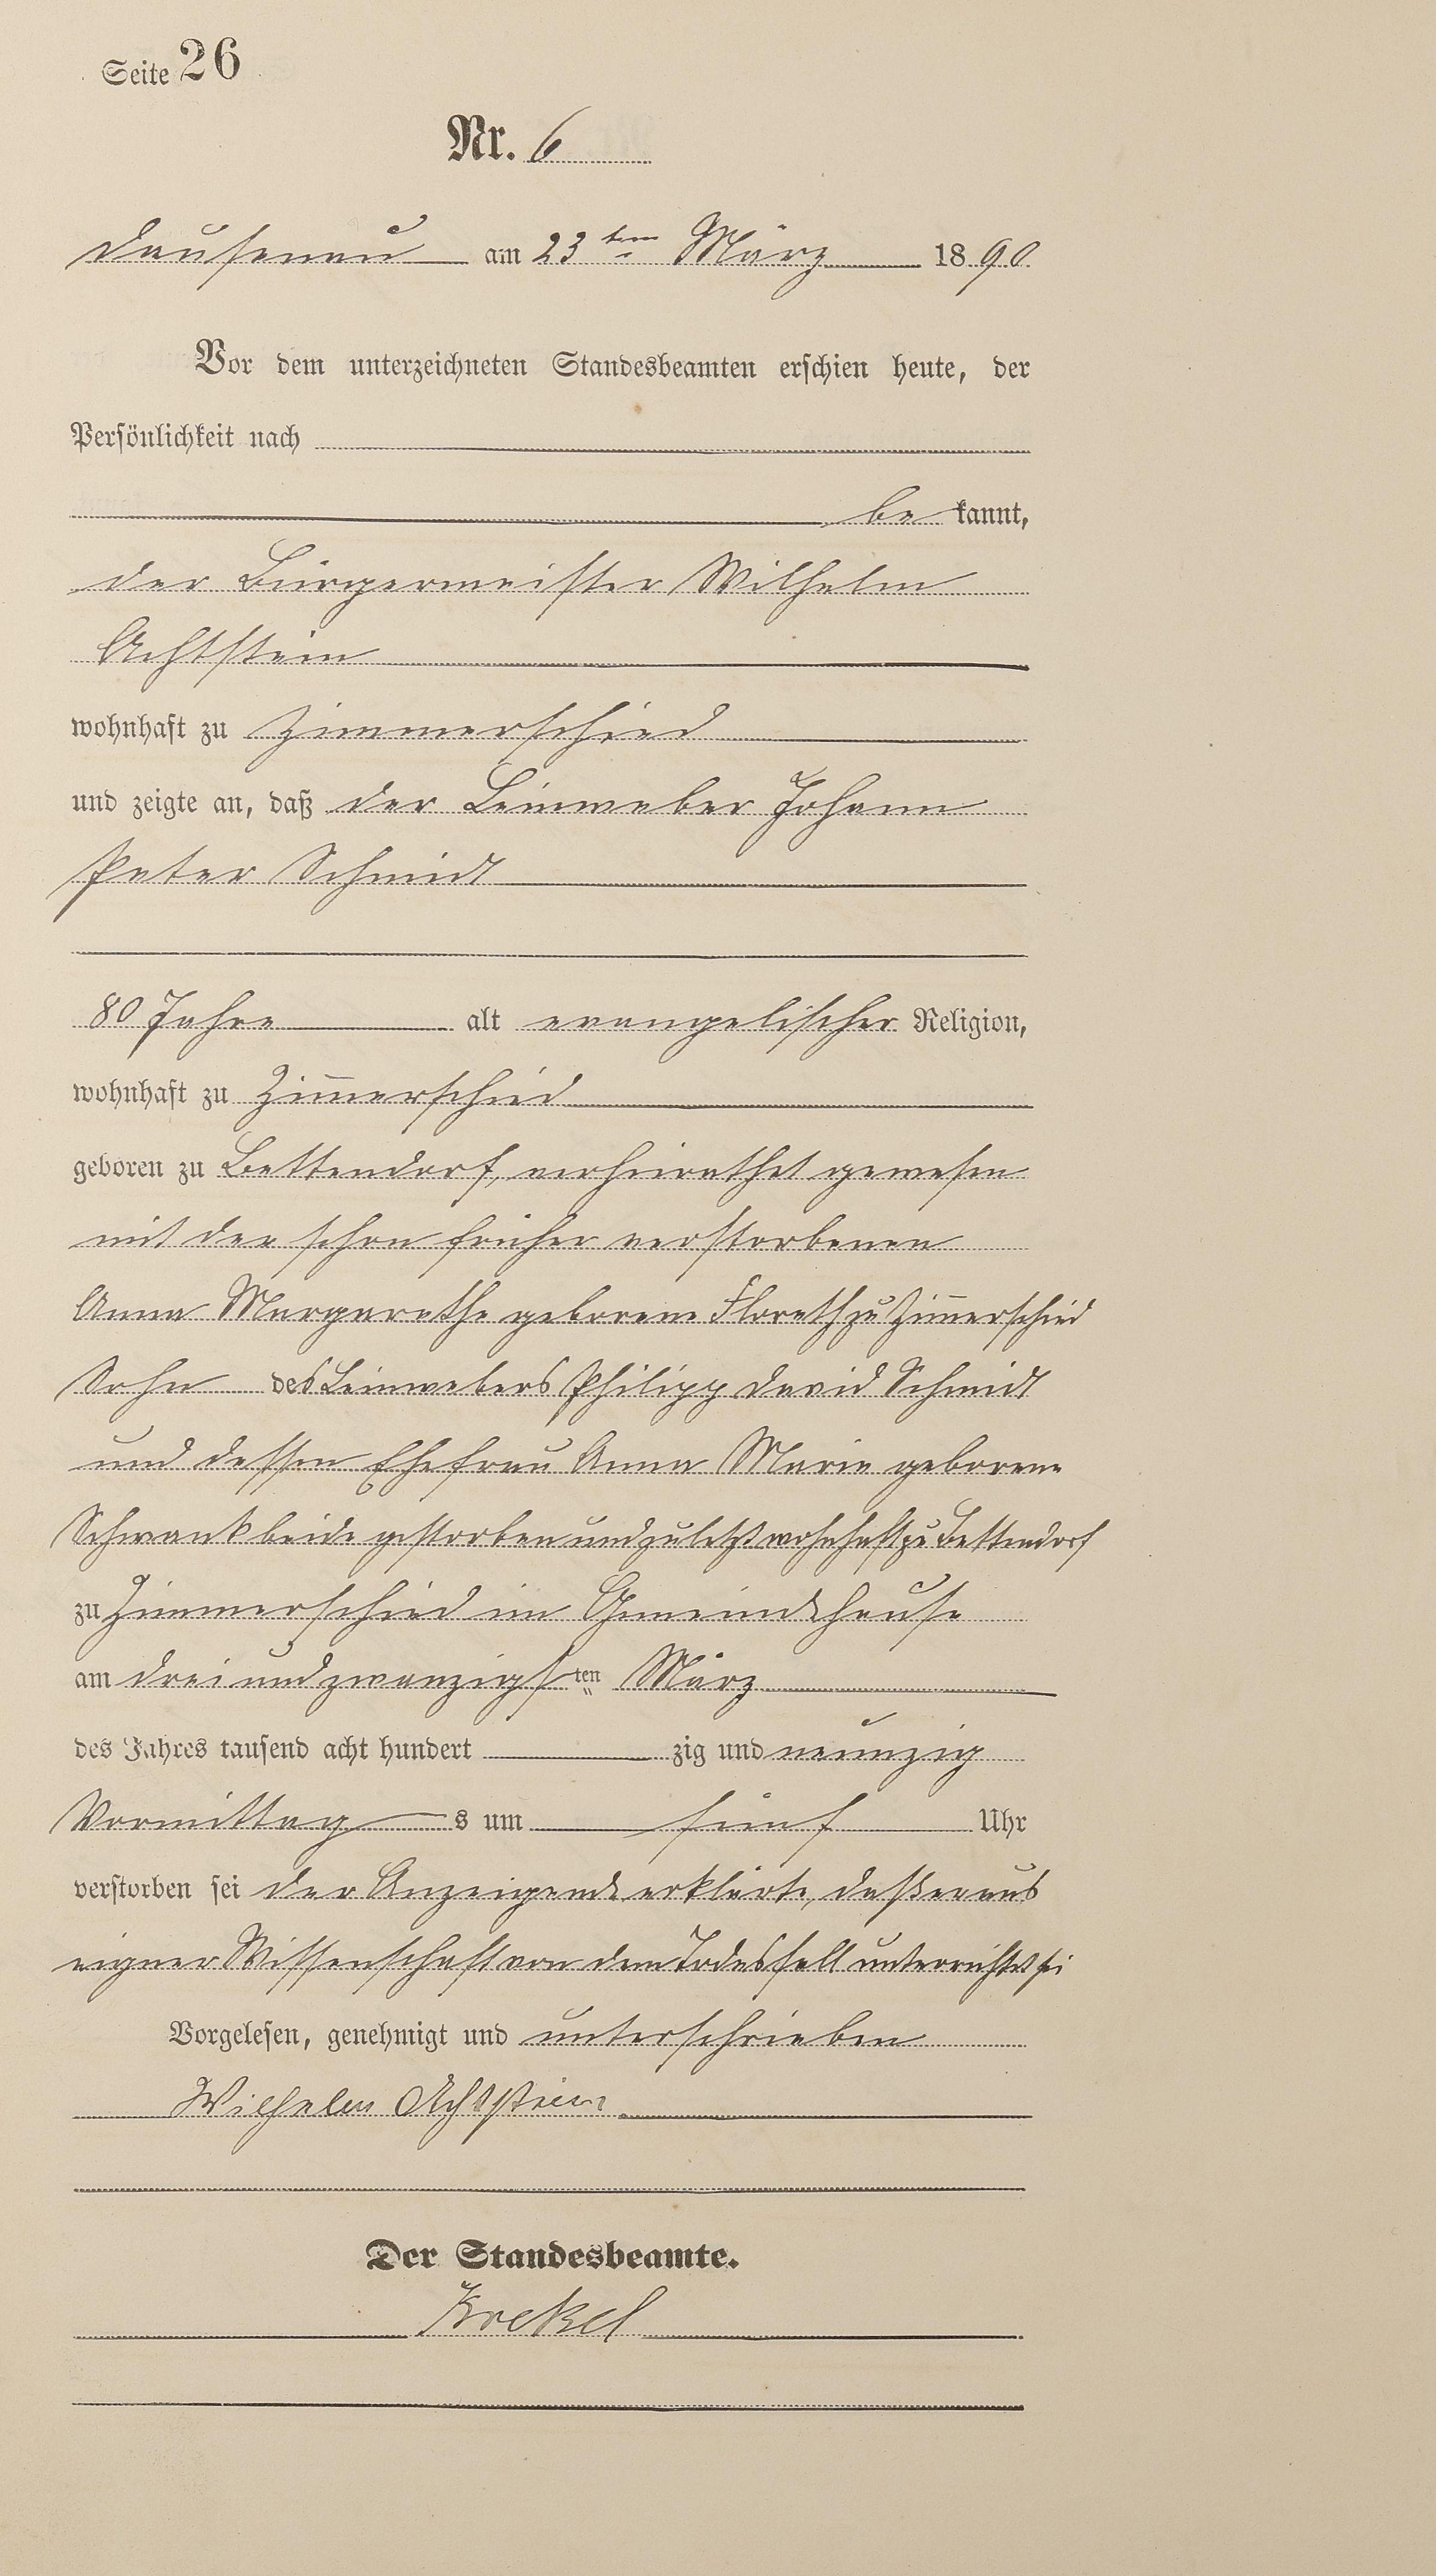 Seite 26
Nr. 6
Dausenau am 23ten März 1890
Vor dem unterzeichneten Standesbeamten erschien heute, der
Persönlichkeit nach
be kannt,
der Bürgermeister Wilhelm
Achtstein
wohnhaft zu Zimmerschied
und zeigte an, daß der Leinweber Johann
Peter Schmidt
80 Jahre alt evangelischer Religion,
wohnhaft zu Zim̅erschied
geboren zu Bettendorf, verheirathet gewesen
mit der schon früher verstorbenen
Anna Margarethe geborene Florath zu Zim̅erschied
Sohn des Leinwebers Philipp David Schmidt
und dessen Ehefrau Anna Marie geborene
Schwank beide gestorben und zuletzt wohnhaft zu Bettendorf
zu Zimmerschied im Gemeindehause
am dreiundzwanzigsten März
des Jahres tausend acht hundert zig und neunzig
Vormittag s um fünf Uhr
verstorben sei der Anzeigende erklärte, daß er aus
eigner Wissenschaft von dem Todesfall unterrichtet sei
Vorgelesen, genehmigt und unterschrieben
Wilhelm Achtstein
Der Standesbeamte.
Krekel